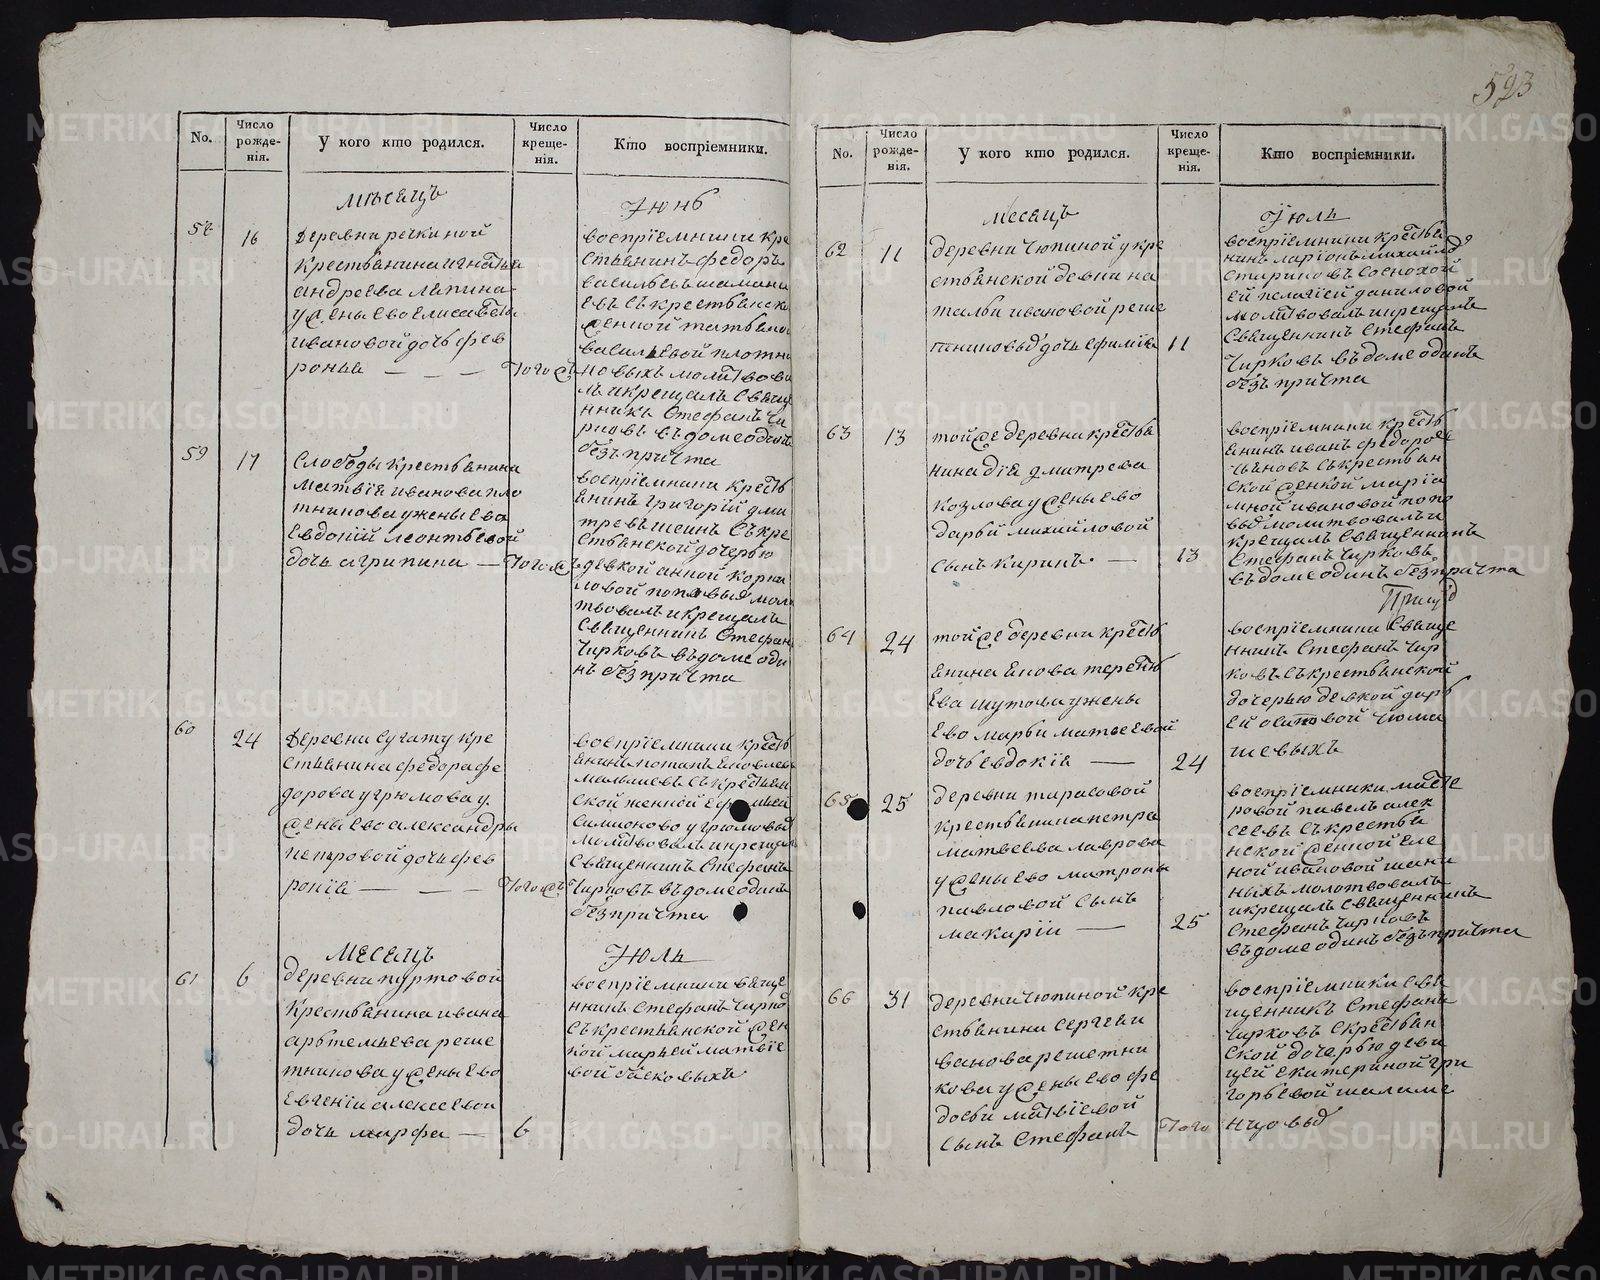 523
No.
Число рожде-нія.
У кого кто родился.
Число креще-нія.
Кто воспріемники.
мѣсяцъ
Июнь
58
16
деревни речкиной
крестьянина игнатья
андреева лапина
у жены ево елисаветы
ивановой дочь фев
ронья
Того ж
воспріемники кре
стьянинъ федоръ
васильевъ
евъ съ крестьянско
женкой татьяно
васильевой плотни
новыхъ молитвова
лъ и крещалъ Свяще
нникъ Стефанъ Чи
рковъ въ доме одинъ
безъ причта
59
17
Слободы крестьянина
матвія иванова пло
тникова у жены ево
Евдокіи леонтьевой
дочь агрипина
Того ж
воспріемники кресть
янинъ григорій дми
тревъ шеинъ Съ кре
стьянской дочерью
девкой анной корни
ловой поповыхъ моли
твовалъ и крещалъ
Священникъ Стефан
Чирковъ въ доме оди
нъ безъ причта
60
24
Деревни Сугату кре
стьянина федора фе
дорова угрюмова у
жены ево александры
петровой дочь фев
ронія
Того жъ
воспріемники кресть
янинъ потапъ яковлев
малышевъ Съ крестьян
ской женкой
симионово угрюмовых
молитвовалъ и крещал
Священникъ Стефанъ
Чирковъ въ доме одинъ
безъ причта
Месяцъ
Июль
61
6
деревни пуртовой
Крестьянина ивана
артемьева реше
тникова у жены ево
Евгеніи алексеевой
дочь марфа
6
воспріемники свяще
нникъ Стефанъ Чирков
Съ крестьянской жен
кой марьей матвіе
вой
No.
Число рожде-нія.
У кого кто родился.
Число креще-нія.
Кто воспріемники.
Месяцъ
Июль
62
11
деревни Чюпиной у кре
стьянской девки на
тальи ивановой реше
тниковых дочь ефимія
11
воспріемники крестья
нинъ ларіонъ михайлов
Стариковъ Со снохой
ей пелагіей даниловой
молитвовалъ и крещалъ
Священникъ Стефанъ
Чирковъ въ доме одинъ
безъ причта
63
13
той же деревни кресть
нина діа дмитрева
козлова у жены ево
дарьи михайловой
Сынъ Киринъ
13
воспріемники кресть
янинъ иванъ федоров
съ крестьян
ской женкой марія
мной ивановой попо
выхъ молитвовалъ и
крещалъ Священникъ
Стефанъ Чирковъ
въ доме одинъ безъ причта
64
24
той же деревни кресть
янина якова теренть
ева шутова у жены
Ево марьи матвеевой
дочь евдокія
24
воспріемники Свяще
нникъ Стефанъ Чир
ковъ Съ крестьянской
дочерью девкой дарь
ей осиповой чюма
чиевыхъ
65
25
деревни тарасовой
Крестьянина петра
матвеева лаврова
у жены ево матроны
павловой Сынъ
макарій
25
воспріемники масте
ровой павелъ алек
сеевъ Съ крестья
нской женкой еле
ной ивановой шани
ныхъ молитвовалъ
и крещалъ Священникъ
Стефанъ Чирковъ
въ доме одинъ безъ причта
66
31
деревни Чюпиной кре
стьянина Сергея и
ванова решетни
кова у жены ево фе
досьи матвіевой
Сынъ Стефанъ
Того
воспріемники свя
щенникъ Стефанъ
Чирковъ с крестьян
ской дочерью деви
цей екатериной гри
горьевой шаламе
нцовых